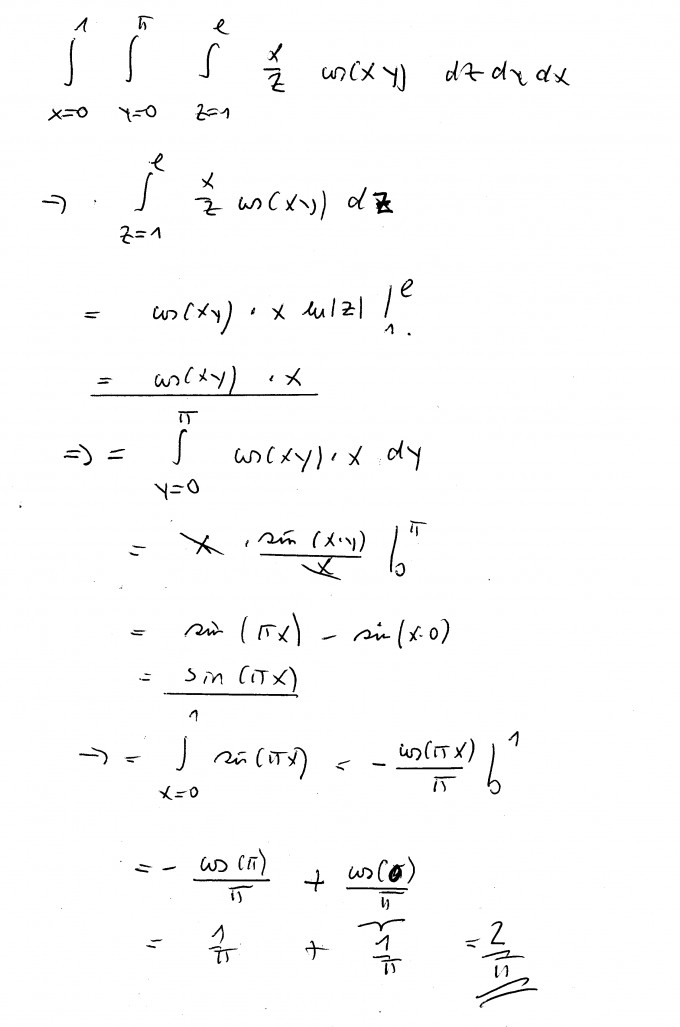 ∫_{x=0}^{1} ∫_{y=0}^{π} ∫_{z=1}^{e} x/z cos(xy) dz dy dx
→ ∫_{z=1}^{e} x/z cos(xy) dz
= cos(xy) · x ln|z| |_{1}^{e}
= cos(xy) · x
⇒ = ∫_{y=0}^{π} cos(xy) · x dy
= x · sin(x·y)/x |_{0}^{π}
= sin(πx) − sin(x·0)
= sin(πx)
→ = ∫_{x=0}^{1} sin(πx) = − cos(πx)/π |_{0}^{1}
= − cos(π)/π + cos(0)/π
= 1/π + 1/π = 2/π